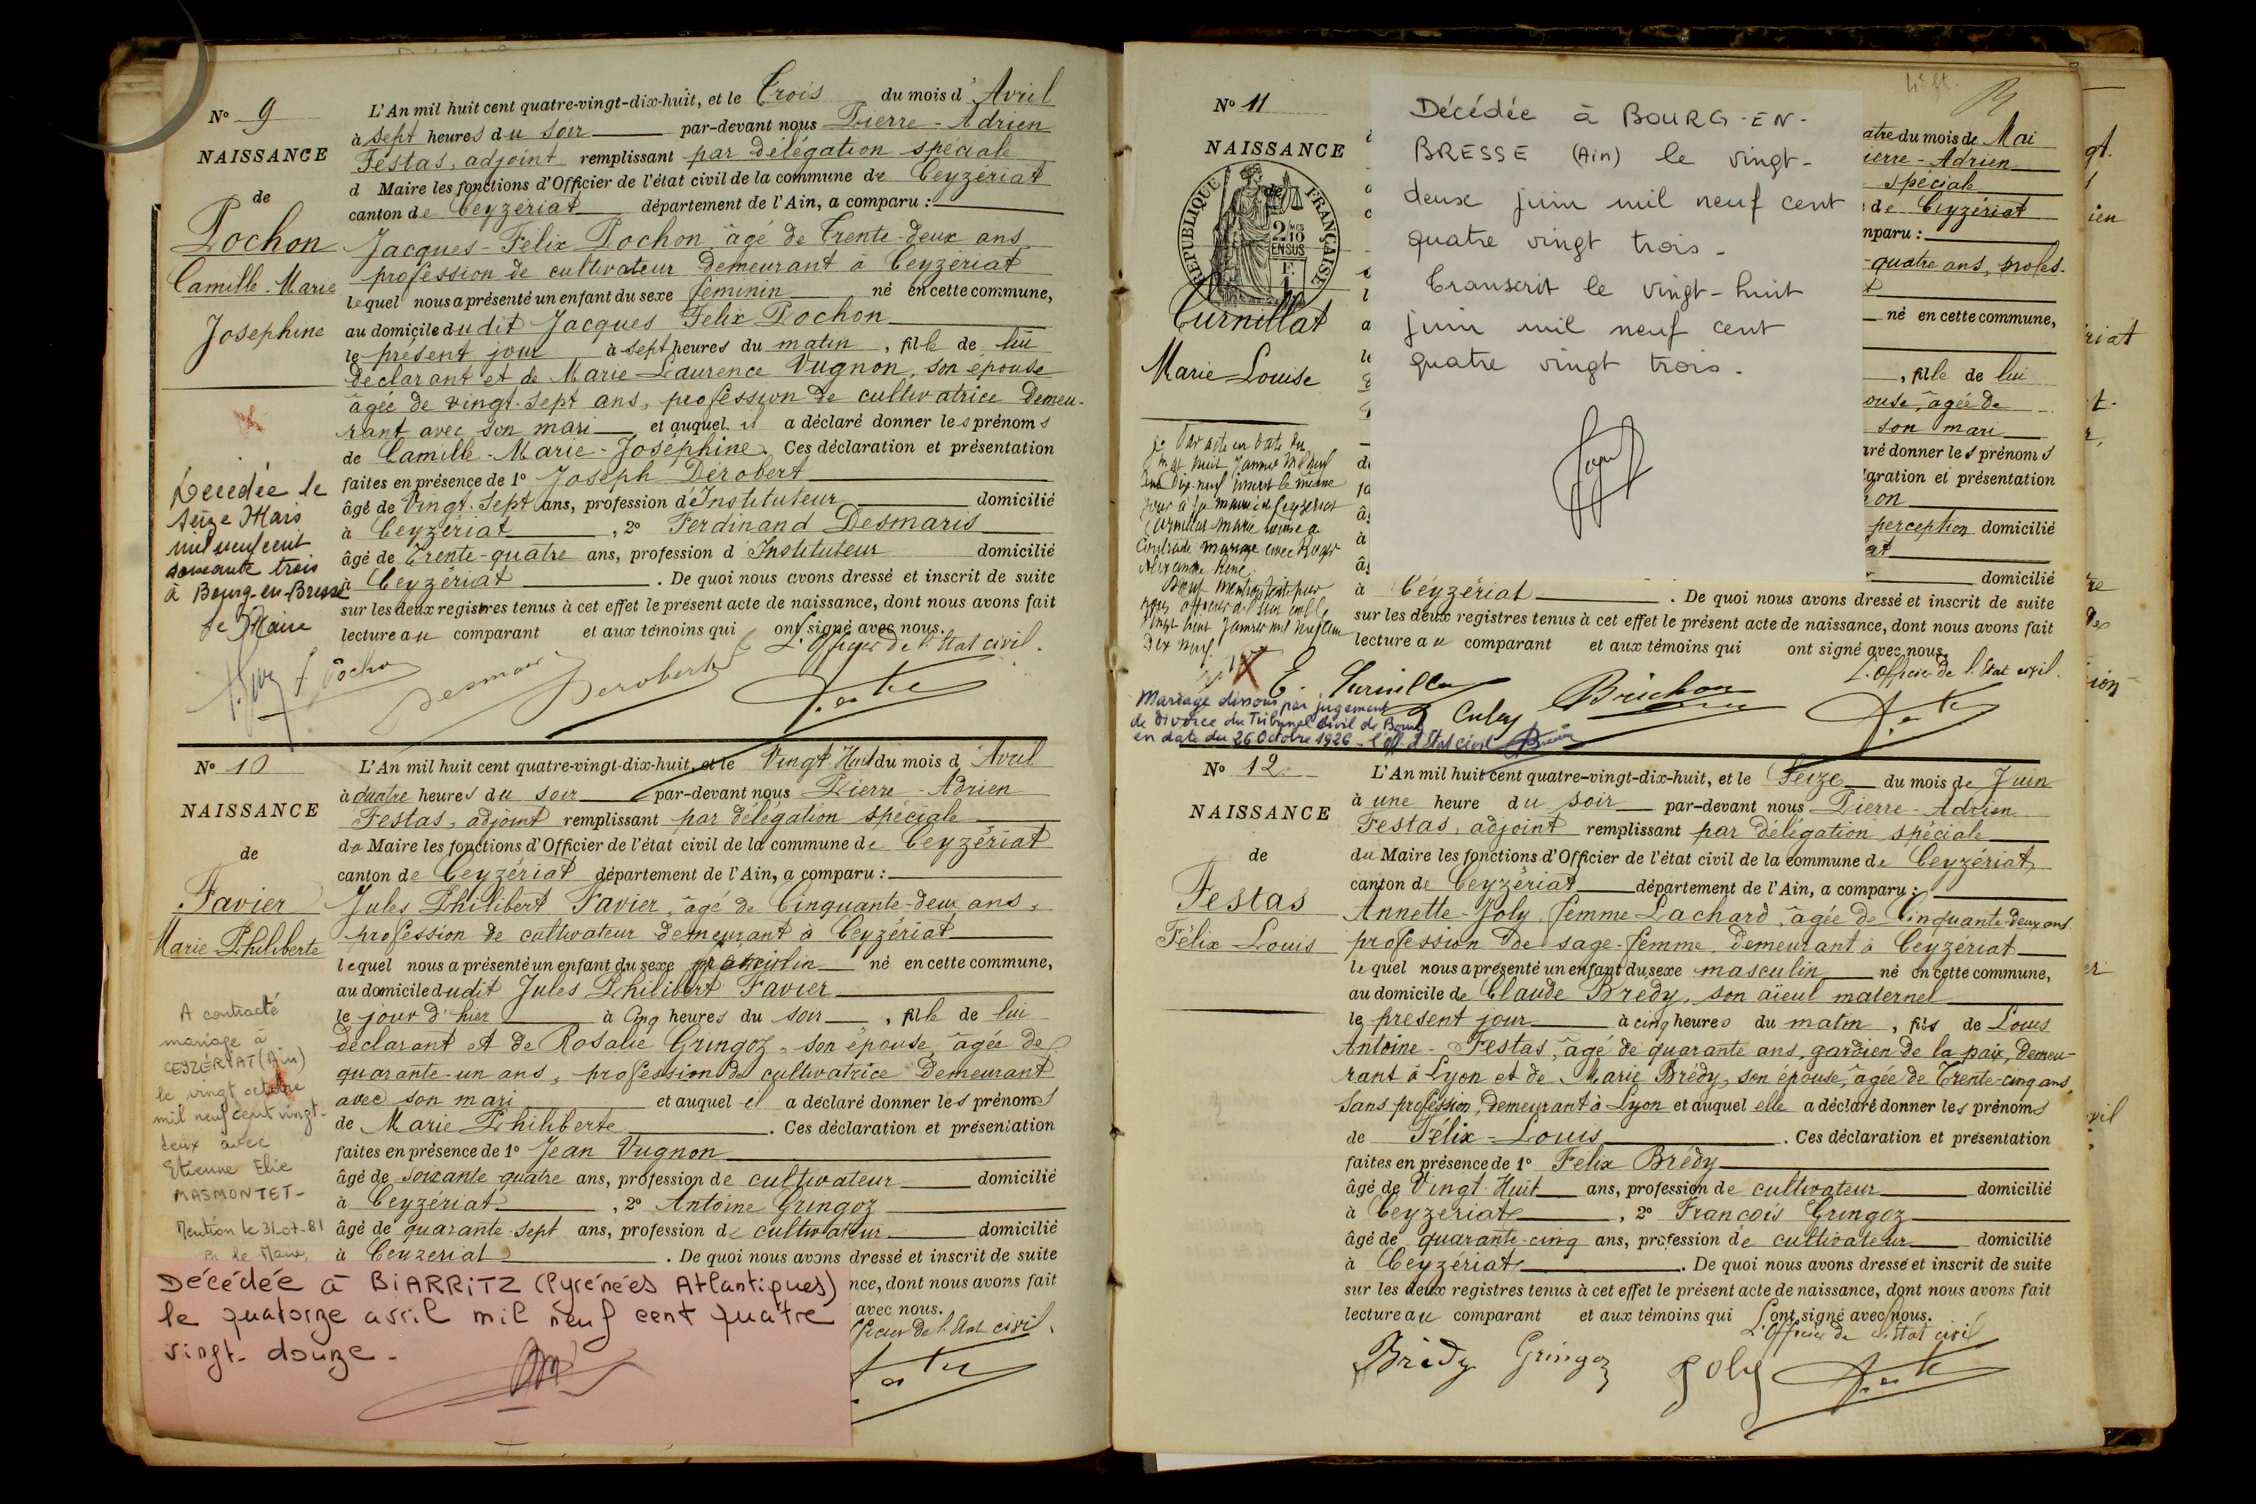 N° 9
NAISSANCE
de
Pochon
Camille-Marie
Joséphine
Décédée le
seize Mars
mil neuf cent
soixante trois
à Bourg-en-Bresse
Le Maire
L'An mil huit cent quatre-vingt-dix-huit, et le Trois du mois d'Avril
à sept heures du soir par-devant nous Pierre-Adrien
Festas, adjoint remplissant par délégation spéciale
d Maire les fonctions d'Officier de l'état civil de la commune de Ceyzériat
canton de Ceyzériat département de l'Ain, a comparu :
Jacques-Félix Pochon, âgé de Trente-deux ans
profession de cultivateur demeurant à Ceyzériat
lequel nous a présenté un enfant du sexe féminin né en cette commune,
au domicile dudit Jacques Félix Pochon
le présent jour à sept heures du matin, fille de lui
déclarant et de Marie-Laurence Vugnon, son épouse
âgée de vingt-sept ans, profession de cultivatrice Demeu-
rant avec son mari et auquel il a déclaré donner les prénoms
de Camille-Marie-Joséphine. Ces déclaration et présentation
faites en présence de 1° Joseph Dérobert
âgé de Vingt-Sept ans, profession d'Instituteur domicilié
à Ceyzériat, 2° Ferdinand Desmaris
âgé de Trente-quatre ans, profession d'Instituteur domicilié
à Ceyzériat. De quoi nous avons dressé et inscrit de suite
sur les deux registres tenus à cet effet le présent acte de naissance, dont nous avons fait
lecture au comparant et aux témoins qui ont signé avec nous.
L'Officier de l'état civil.
f Pochon Desmaris Derobert
N° 10
NAISSANCE
de
Favier
Marie Philiberte
A contracté
mariage à
CEYZÉRIAT (Ain)
le vingt octobre
mil neuf cent vingt-
deux avec
Etienne Elie
MASMONTET-
L'An mil huit cent quatre-vingt-dix-huit, et le Vingt Huit du mois d'Avril
à quatre heures du soir par-devant nous Pierre-Adrien
Festas, adjoint remplissant par délégation spéciale
du Maire les fonctions d'Officier de l'état civil de la commune de Ceyzériat
canton de Ceyzériat département de l'Ain, a comparu :
Jules Philibert Favier, âgé de Cinquante-deux ans,
profession de cultivateur demeurant à Ceyzériat
lequel nous a présenté un enfant du sexe né en cette commune,
au domicile dudit Jules Philibert Favier
le jour d'hier à Cinq heures du soir, fille de lui
déclarant et de Rosalie Gringoz, son épouse, âgée de
quarante-un ans, profession de cultivatrice Demeurant
avec son mari et auquel il a déclaré donner les prénoms
de Marie Philiberte. Ces déclaration et présentation
faites en présence de 1° Jean Vugnon
âgé de soixante-quatre ans, profession de cultivateur domicilié
à Ceyzériat, 2° Antoine Gringoz
âgé de quarante-sept ans, profession de cultivateur domicilié
à Ceyzériat. De quoi nous avons dressé et inscrit de suite
nce, dont nous avons fait
avec nous.
fficier de l'état civil.
Décédée à BIARRITZ (Pyrénées Atlantiques)
le quatorze avril mil neuf cent quatre
vingt-douze-
N° 11
NAISSANCE
de
RÉPUBLIQUE FRANÇAISE
Curnillat
Marie-Louise
Décédée à BOURG-EN-
BRESSE (Ain) le vingt-
deux juin mil neuf cent
quatre vingt trois-
Transcrit le vingt-huit
juin mil neuf cent
quatre vingt trois.
atre du mois de Mai
ierre-Adrien
spéciale
de Ceyzériat
mparu :
-quatre ans, profes-
né en cette commune,
, fille de lui
ouse, âgée de
son mari
ré donner les prénoms
laration et présentation
perception domicilié
domicilié
à Ceyzériat. De quoi nous avons dressé et inscrit de suite
sur les deux registres tenus à cet effet le présent acte de naissance, dont nous avons fait
lecture au comparant et aux témoins qui ont signé avec nous.
L'Officier de l'état civil.
Mariage dissous par jugement
de divorce du Tribunal civil de Bourg
en date du 26 Octobre 1926
N° 12
NAISSANCE
de
Festas
Félix-Louis
L'An mil huit cent quatre-vingt-dix-huit, et le Seize du mois de Juin
à une heure du soir par-devant nous Pierre-Adrien
Festas, adjoint remplissant par délégation spéciale
du Maire les fonctions d'Officier de l'état civil de la commune de Ceyzériat
canton de Ceyzériat département de l'Ain, a comparu :
Annette-Joly, femme Lachard, âgée de Cinquante-deux ans
profession de sage-femme, demeurant à Ceyzériat
lequel nous a présenté un enfant du sexe masculin né en cette commune,
au domicile de Claude Brédy, son aïeul maternel
le présent jour à cinq heures du matin, fils de Louis
Antoine-Festas, âgé de quarante ans, gardien de la paix, demeu-
rant à Lyon et de Marie Brédy, son épouse, âgée de Trente-cinq ans,
sans profession, demeurant à Lyon et auquel elle a déclaré donner les prénoms
de Félix-Louis. Ces déclaration et présentation
faites en présence de 1° Félix Brédy
âgé de Vingt-Huit ans, profession de cultivateur domicilié
à Ceyzériat, 2° François Gringoz
âgé de quarante-cinq ans, profession de cultivateur domicilié
à Ceyzériat. De quoi nous avons dressé et inscrit de suite
sur les deux registres tenus à cet effet le présent acte de naissance, dont nous avons fait
lecture au comparant et aux témoins qui ont signé avec nous.
L'Officier de l'état civil
Brédy Gringoz Joly